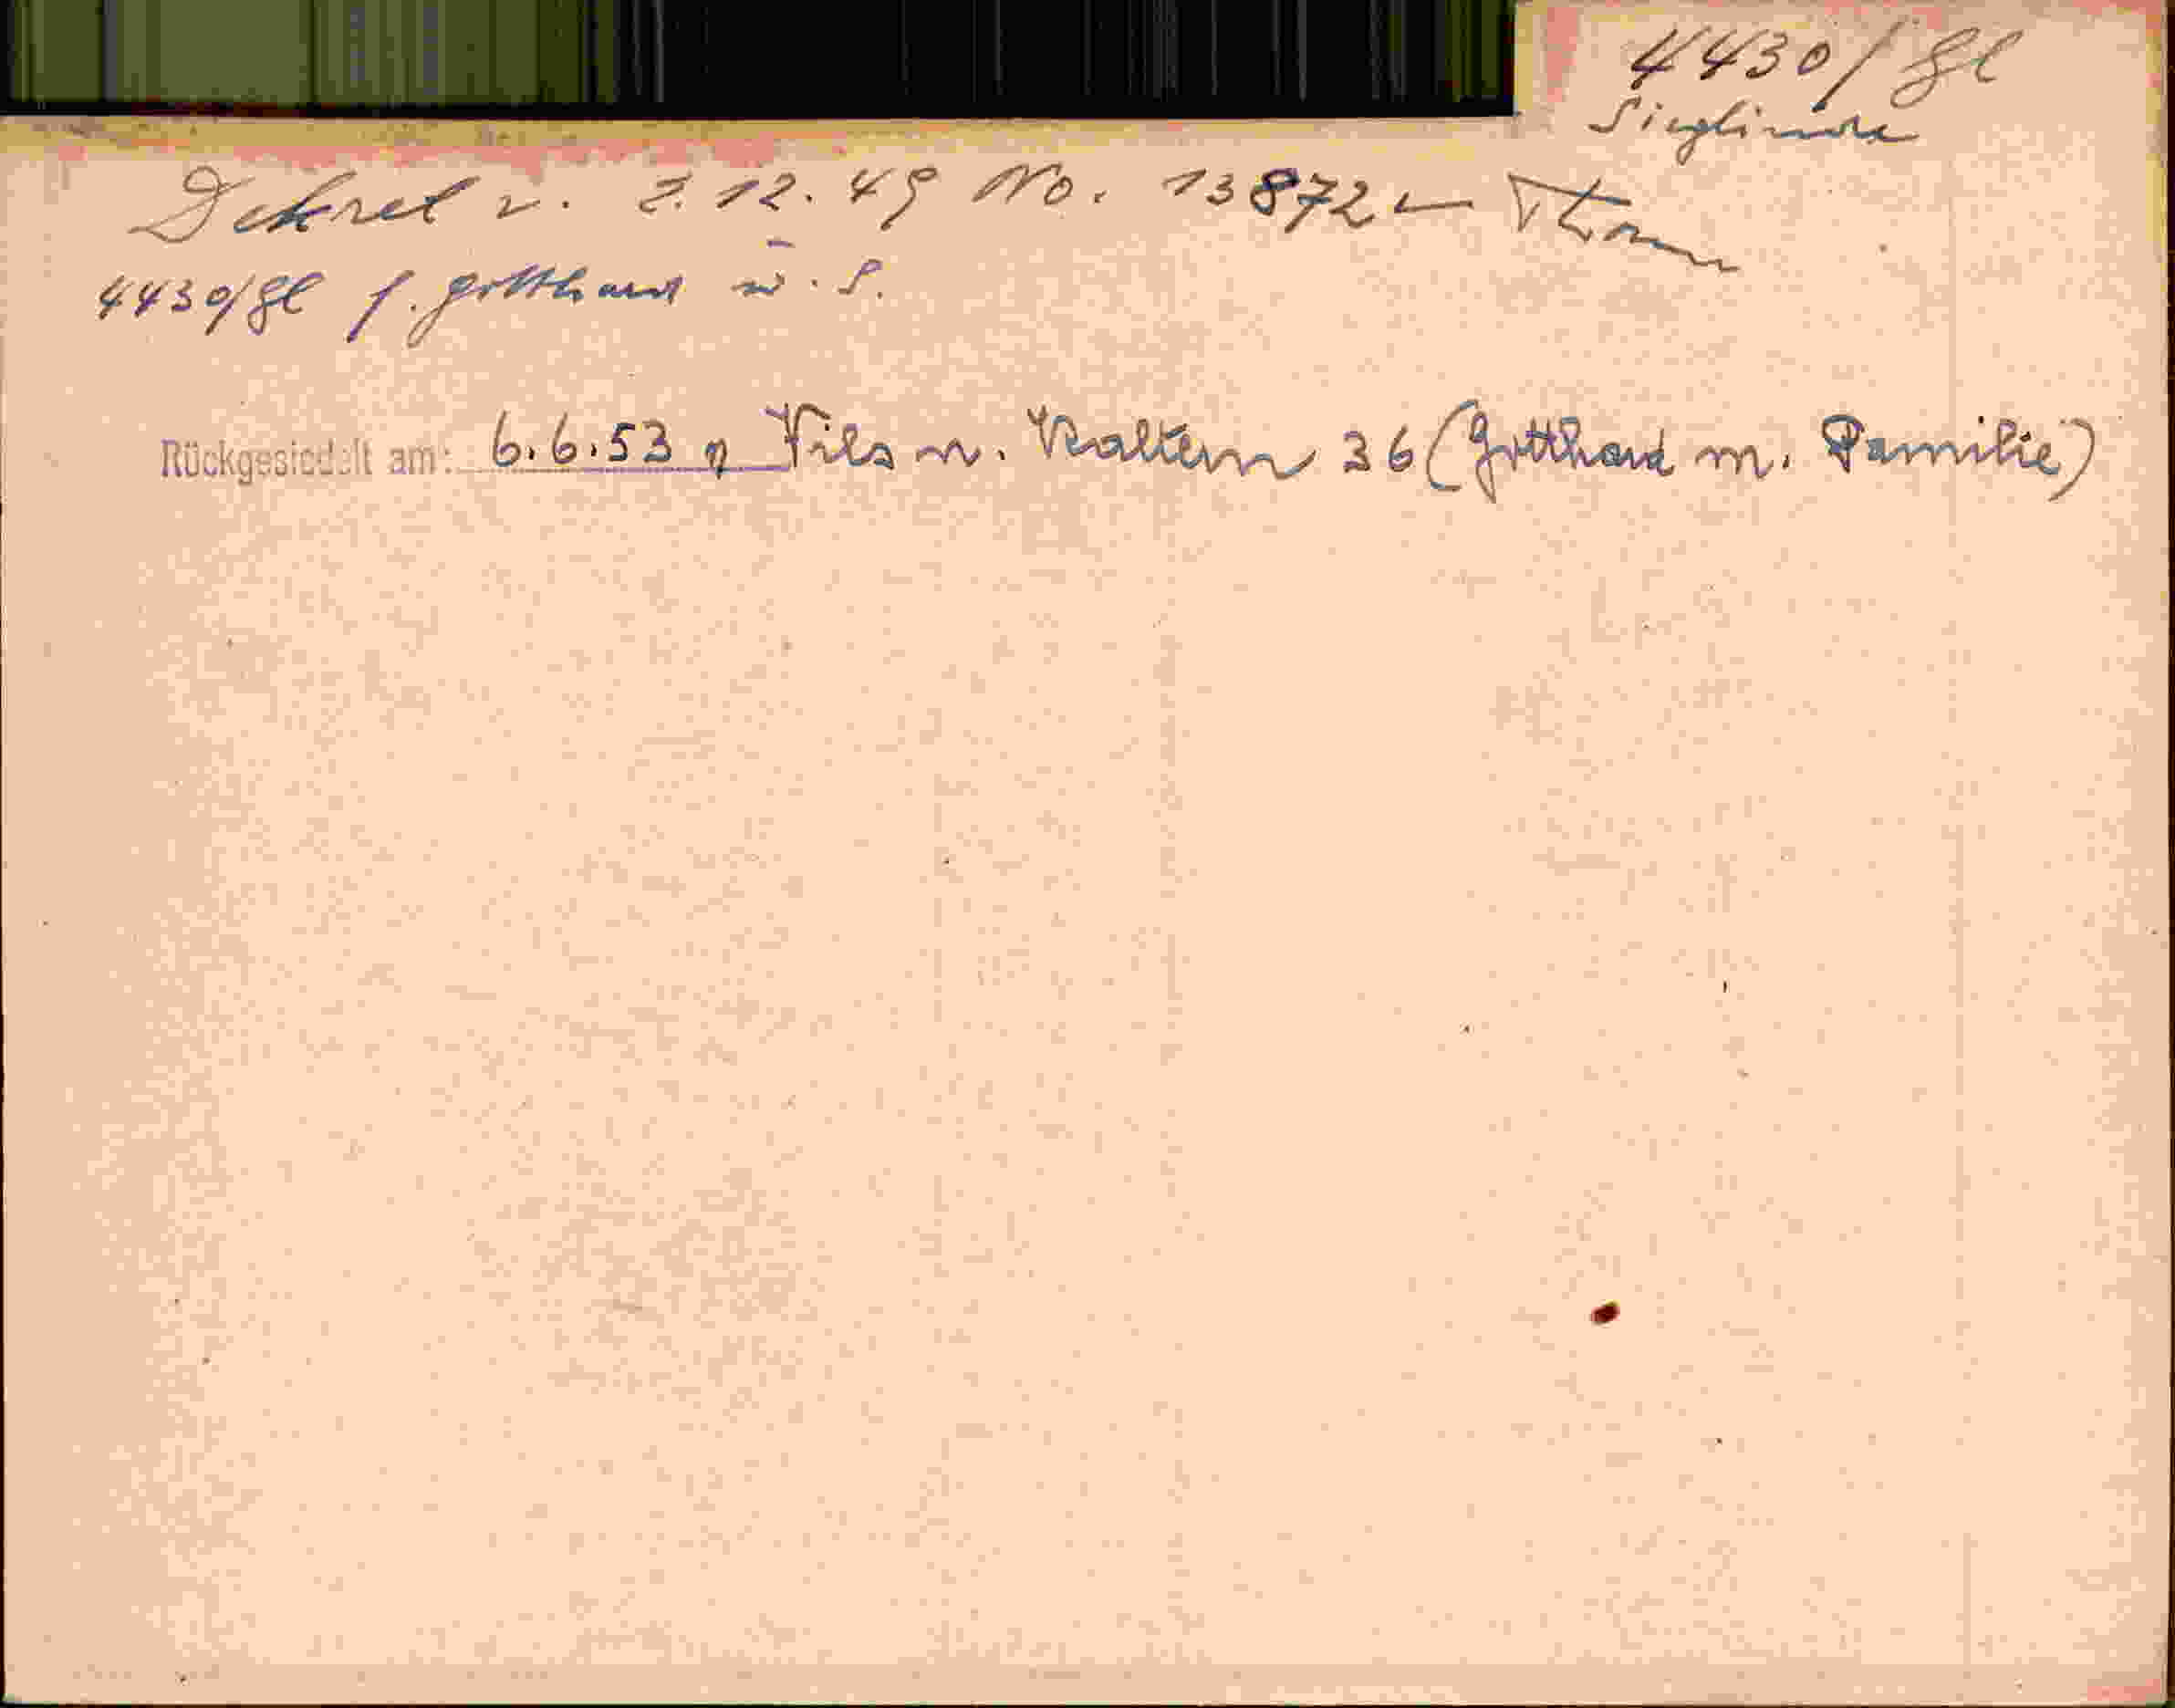 4430/gl
Sieglinde
Dekret v. 2.12.49 No. 13872 –
4430/gl f. Gotthard u. S.
Rückgesiedelt am: 6.6.53 Vils n. Kaltern 36 (Gotthard m. Familie)